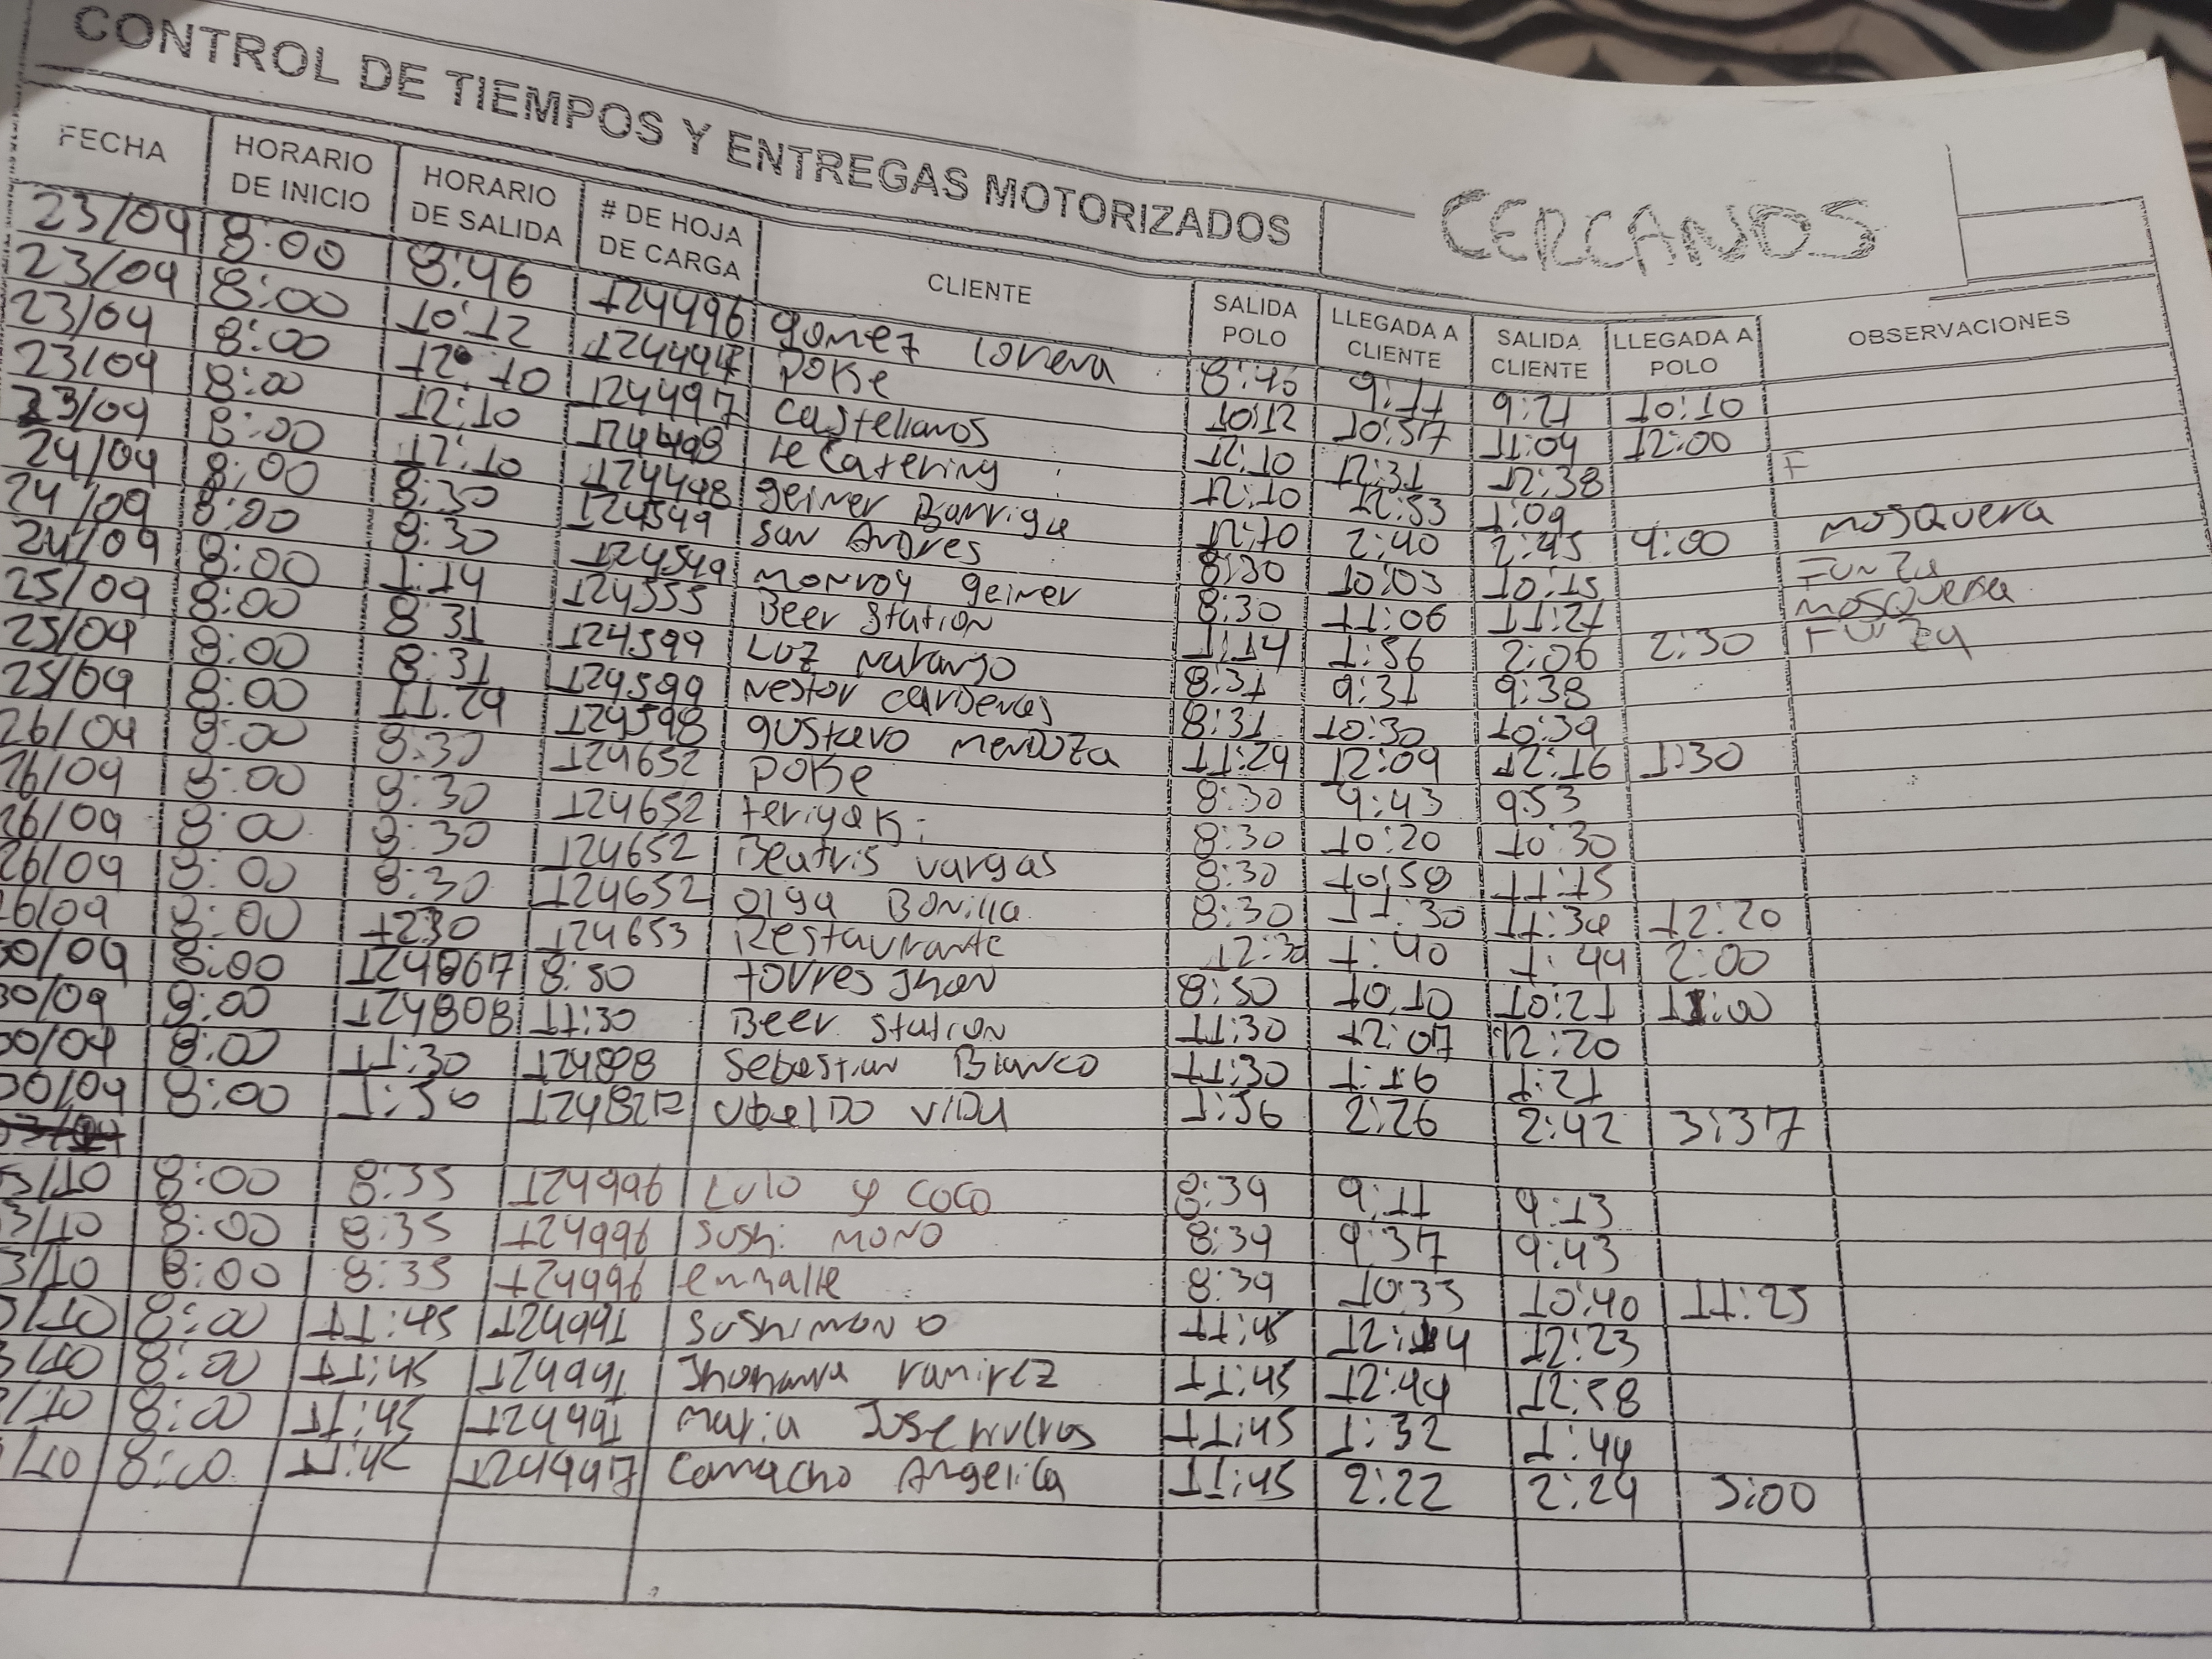 CONTROL DE TIEMPOS Y ENTREGAS MOTORIZADOS CERCANOS
FECHA HORARIO DE INICIO HORARIO DE SALIDA # DE HOJA DE CARGA CLIENTE SALIDA POLO LLEGADA A CLIENTE SALIDA CLIENTE LLEGADA A POLO OBSERVACIONES
23/09 8:00 8:46 124496 gomez Lorena 8:46 9:11 9:21 10:10
23/09 8:00 10:12 124494 Poke 10:12 10:57 11:04 12:00
23/09 8:00 12:10 124497 Castellanos 12:10 12:31 12:38 F
23/09 8:00 12:10 124498 le Catering 12:10 12:53 1:09
23/09 8:00 12:10 124498 geiner Barriga 12:10 2:40 2:45 4:00 MOSQUERA
24/09 8:00 8:30 124549 San Andres 8:30 10:03 10:15 Funza
24/09 8:00 8:30 124549 monroy geiner 8:30 11:06 11:21 MOSQUERA
24/09 8:00 1:14 124555 Beer Station 1:14 1:56 2:06 2:30 Funza
25/09 8:00 8:31 124599 Luz naranjo 8:31 9:31 9:38
25/09 8:00 8:31 124599 Nestor cardenas 8:31 10:30 10:39
25/09 8:00 11:29 124598 gustavo mendoza 11:29 12:09 12:16 1:30
26/09 8:00 8:30 124652 Poke 8:30 9:43 9:53
26/09 8:00 8:30 124652 teriyaki 8:30 10:20 10:30
26/09 8:00 8:30 124652 Beatris vargas 8:30 10:58 11:15
26/09 8:00 8:30 124652 Olga Bonilla 8:30 11:30 11:34 12:20
26/09 8:00 1230 124653 Restaurante 12:30 1:40 1:44 2:00
30/09 8:00 124807 8:50 torres Jhon 8:50 10:10 10:21 11:00
30/09 8:00 124808 11:30 Beer Station 11:30 12:07 12:20
30/09 8:00 11:30 124808 Sebastian Blanco 11:30 1:16 1:21
30/09 8:00 1:56 Ubaldo vida 1:56 2:26 2:42 3:37
3/10 8:00 8:35 124996 Lulo y coco 8:39 9:11 9:13
3/10 8:00 8:35 124996 Sushi mono 8:39 9:37 9:43
3/10 8:00 8:35 124996 enmalle 8:39 10:33 10:40 11:25
3/10 8:00 11:45 124991 Sushimono 11:45 12:14 12:23
3/10 8:00 11:45 124991 Jhohanna ramirez 11:45 12:44 12:58
/10 8:00 11:45 124991 Maria Jose 11:45 1:32 1:44
/10 8:00 11:45 124997 Camacho Angelica 11:45 2:22 2:24 3:00